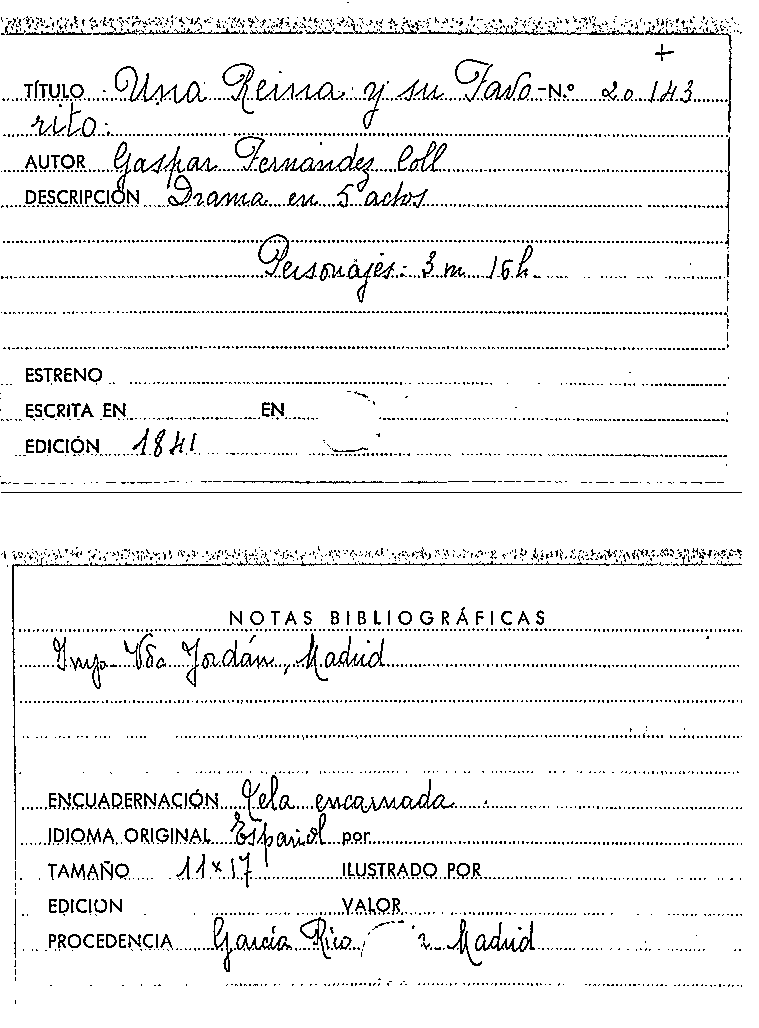 +
TÍTULO Una Reina y su Favo- N.º 20.143
rito.
AUTOR Gaspar Fernández Coll
DESCRIPCIÓN Drama en 5 actos
Personajes: 3 m 16 h.
ESTRENO
ESCRITA EN EN
EDICIÓN 1841
NOTAS BIBLIOGRÁFICAS
Imp. Vda Jordán, Madrid
ENCUADERNACIÓN Tela encarnada
IDIOMA ORIGINAL Español por
TAMAÑO 11x17 ILUSTRADO POR
EDICION VALOR
PROCEDENCIA García Rico Madrid